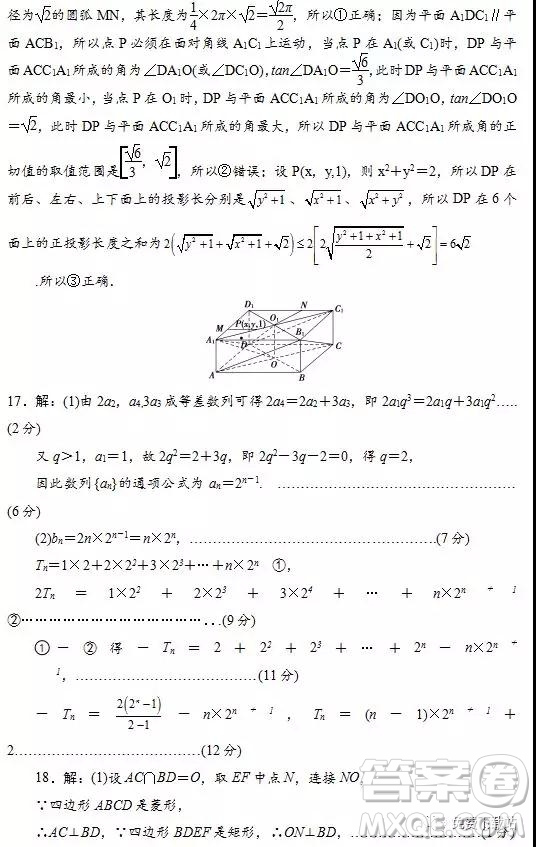 径为√2的圆弧MN，其长度为1/4×2π×√2=√2π/2，所以①正确；因为平面A₁DC₁∥平
面ACB₁，所以点P必须在面对角线A₁C₁上运动，当点P在A₁(或C₁)时，DP与平
面ACC₁A₁所成的角为∠DA₁O(或∠DC₁O)，tan∠DA₁O=√6/3，此时DP与平面ACC₁A₁
所成的角最小，当点P在O₁时，DP与平面ACC₁A₁所成的角为∠DO₁O，tan∠DO₁O
=√2，此时DP与平面ACC₁A₁所成的角最大，所以DP与平面ACC₁A₁所成角的正
切值的取值范围是[√6/3，√2]，所以②错误；设P(x，y,1)，则x²+y²=2，所以DP在
前后、左右、上下面上的投影长分别是√(y²+1)、√(x²+1)、√(x²+y²)，所以DP在6个
面上的正投影长度之和为2(√(y²+1)+√(x²+1)+√2)≤2[2√((y²+1+x²+1)/2)+√2]=6√2
.所以③正确.
D₁ N C₁
M P(x,y,1) O₁
A₁ D B₁ C
O
A B
17．解：(1)由2a₂，a₄,3a₃成等差数列可得2a₄=2a₂+3a₃，即2a₁q³=2a₁q+3a₁q²…..
(2分)
又q>1，a₁=1，故2q²=2+3q，即2q²-3q-2=0，得q=2，
因此数列{aₙ}的通项公式为aₙ=2ⁿ⁻¹. ……………………………………………
(6分)
(2)bₙ=2n×2ⁿ⁻¹=n×2ⁿ，………………………………………………(7分)
Tₙ=1×2+2×2²+3×2³+…+n×2ⁿ ①，
2Tₙ = 1×2² + 2×2³ + 3×2⁴ + … + n×2ⁿ ⁺ ¹
②……………………………………...(9分)
①－②得－Tₙ = 2 + 2² + 2³ + … + 2ⁿ - n×2ⁿ ⁺
¹，…………………………………(11分)
－Tₙ = 2(2ⁿ-1)/(2-1) - n×2ⁿ ⁺ ¹，Tₙ = (n - 1)×2ⁿ ⁺ ¹ +
2…………………………………(12分)
18．解：(1)设AC∩BD=O，取EF中点N，连接NO，
∵四边形ABCD是菱形，
∴AC⊥BD，∵四边形BDEF是矩形，∴ON⊥BD，